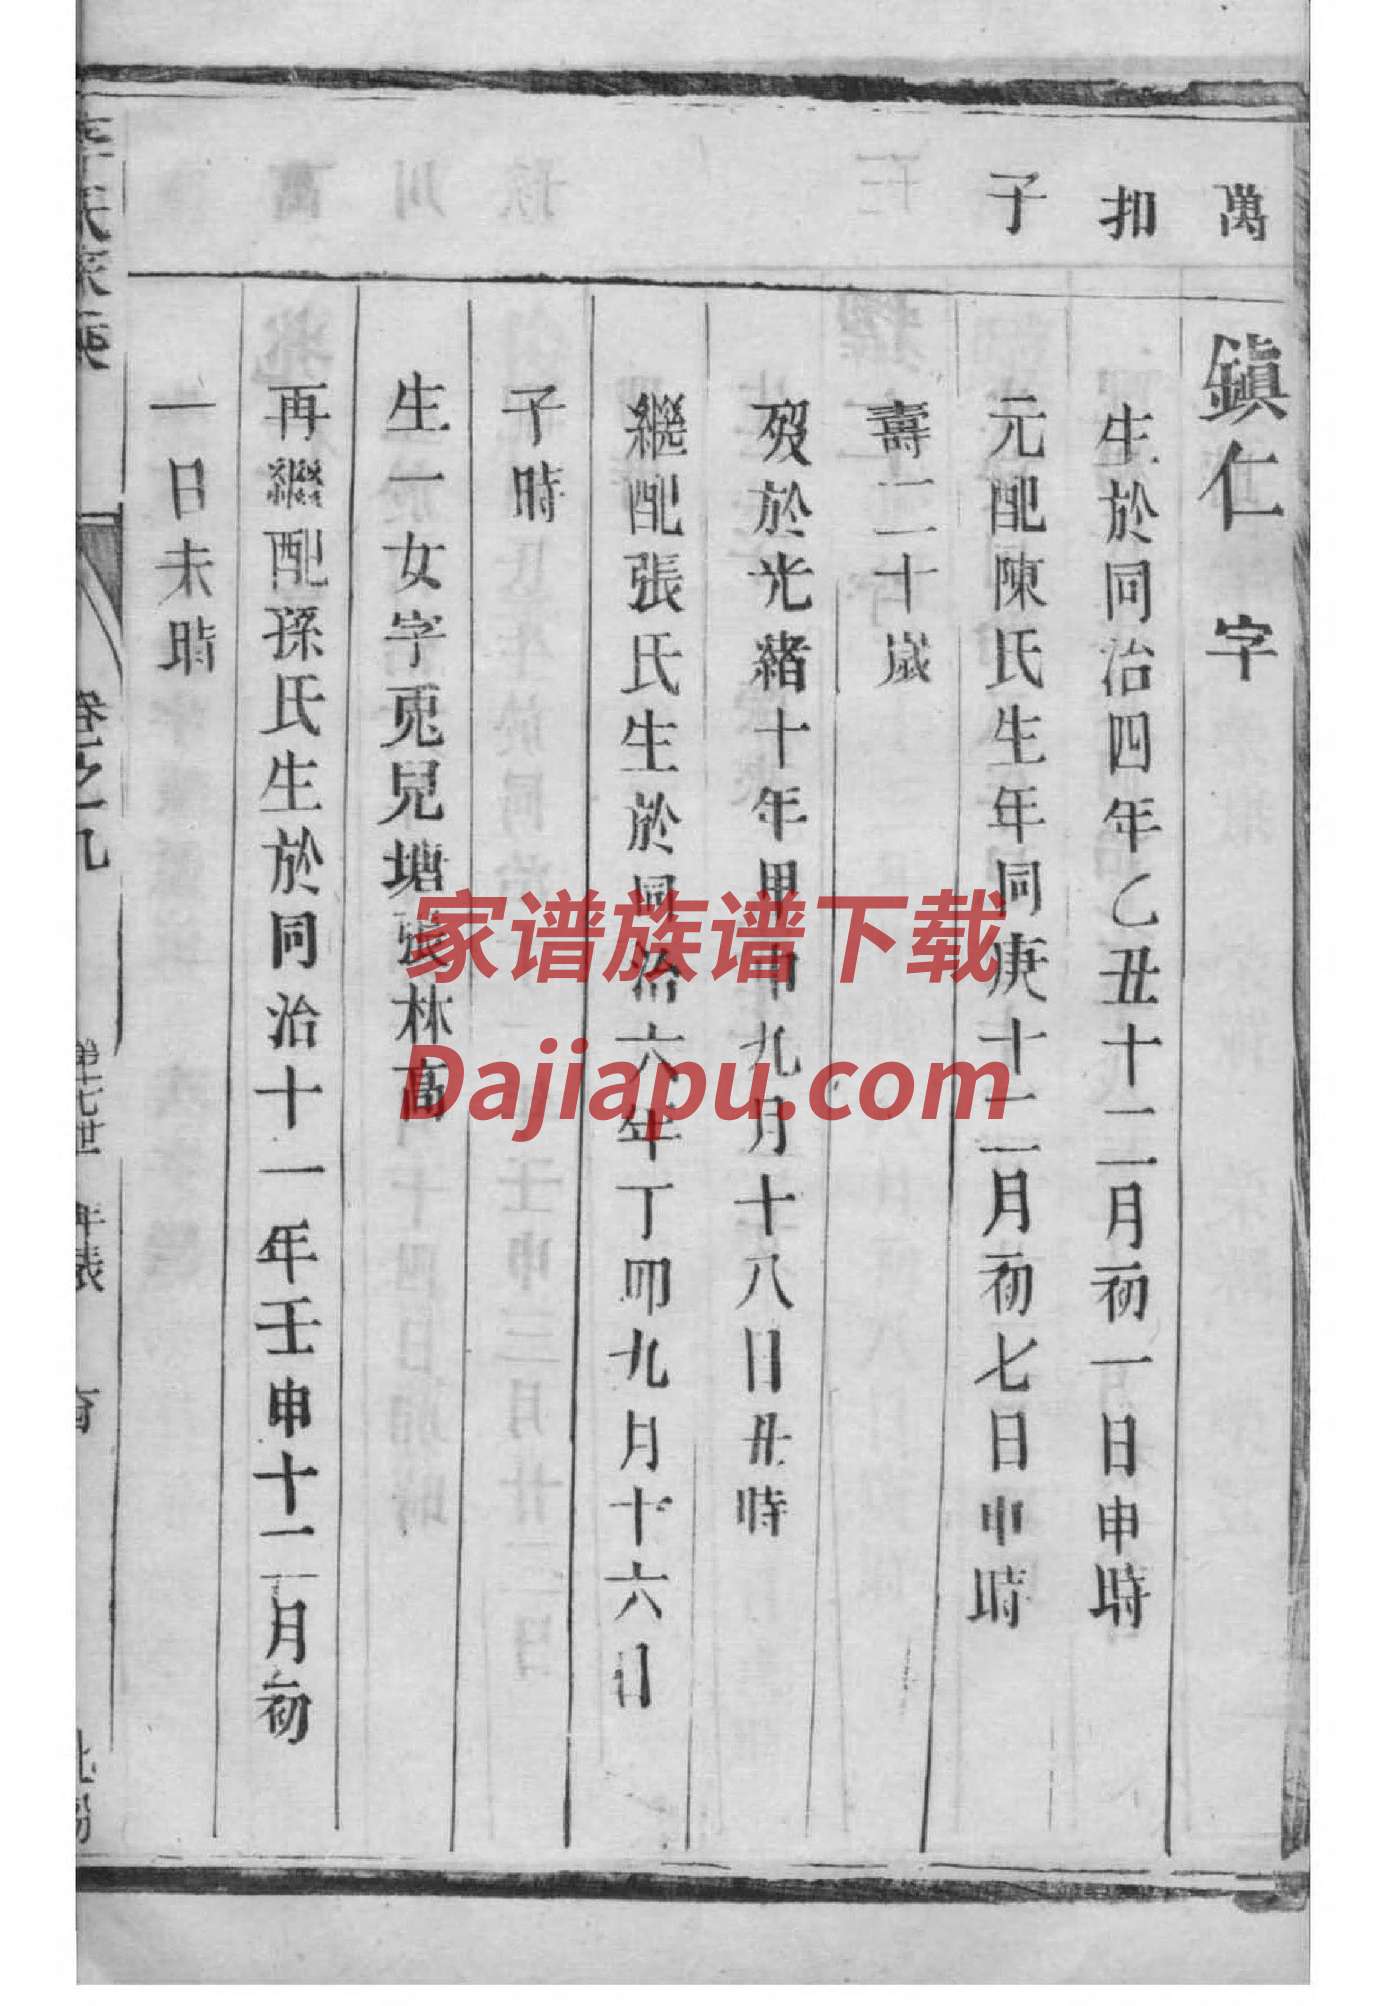 萬
扣
子
鎮仁 字
生於同治四年乙丑十二月初一日申時
元配陳氏生年同庚十二月初七日申時
壽二十歲
歿於光緒十年甲申九月十八日丑時
繼配張氏生於同治六年丁卯九月十六日
子時
生一女字兎兒塘張林高
再繼配孫氏生於同治十一年壬申十二月初
一日未時
卷之九
第七世 年表
家谱族谱下载
Dajiapu.com